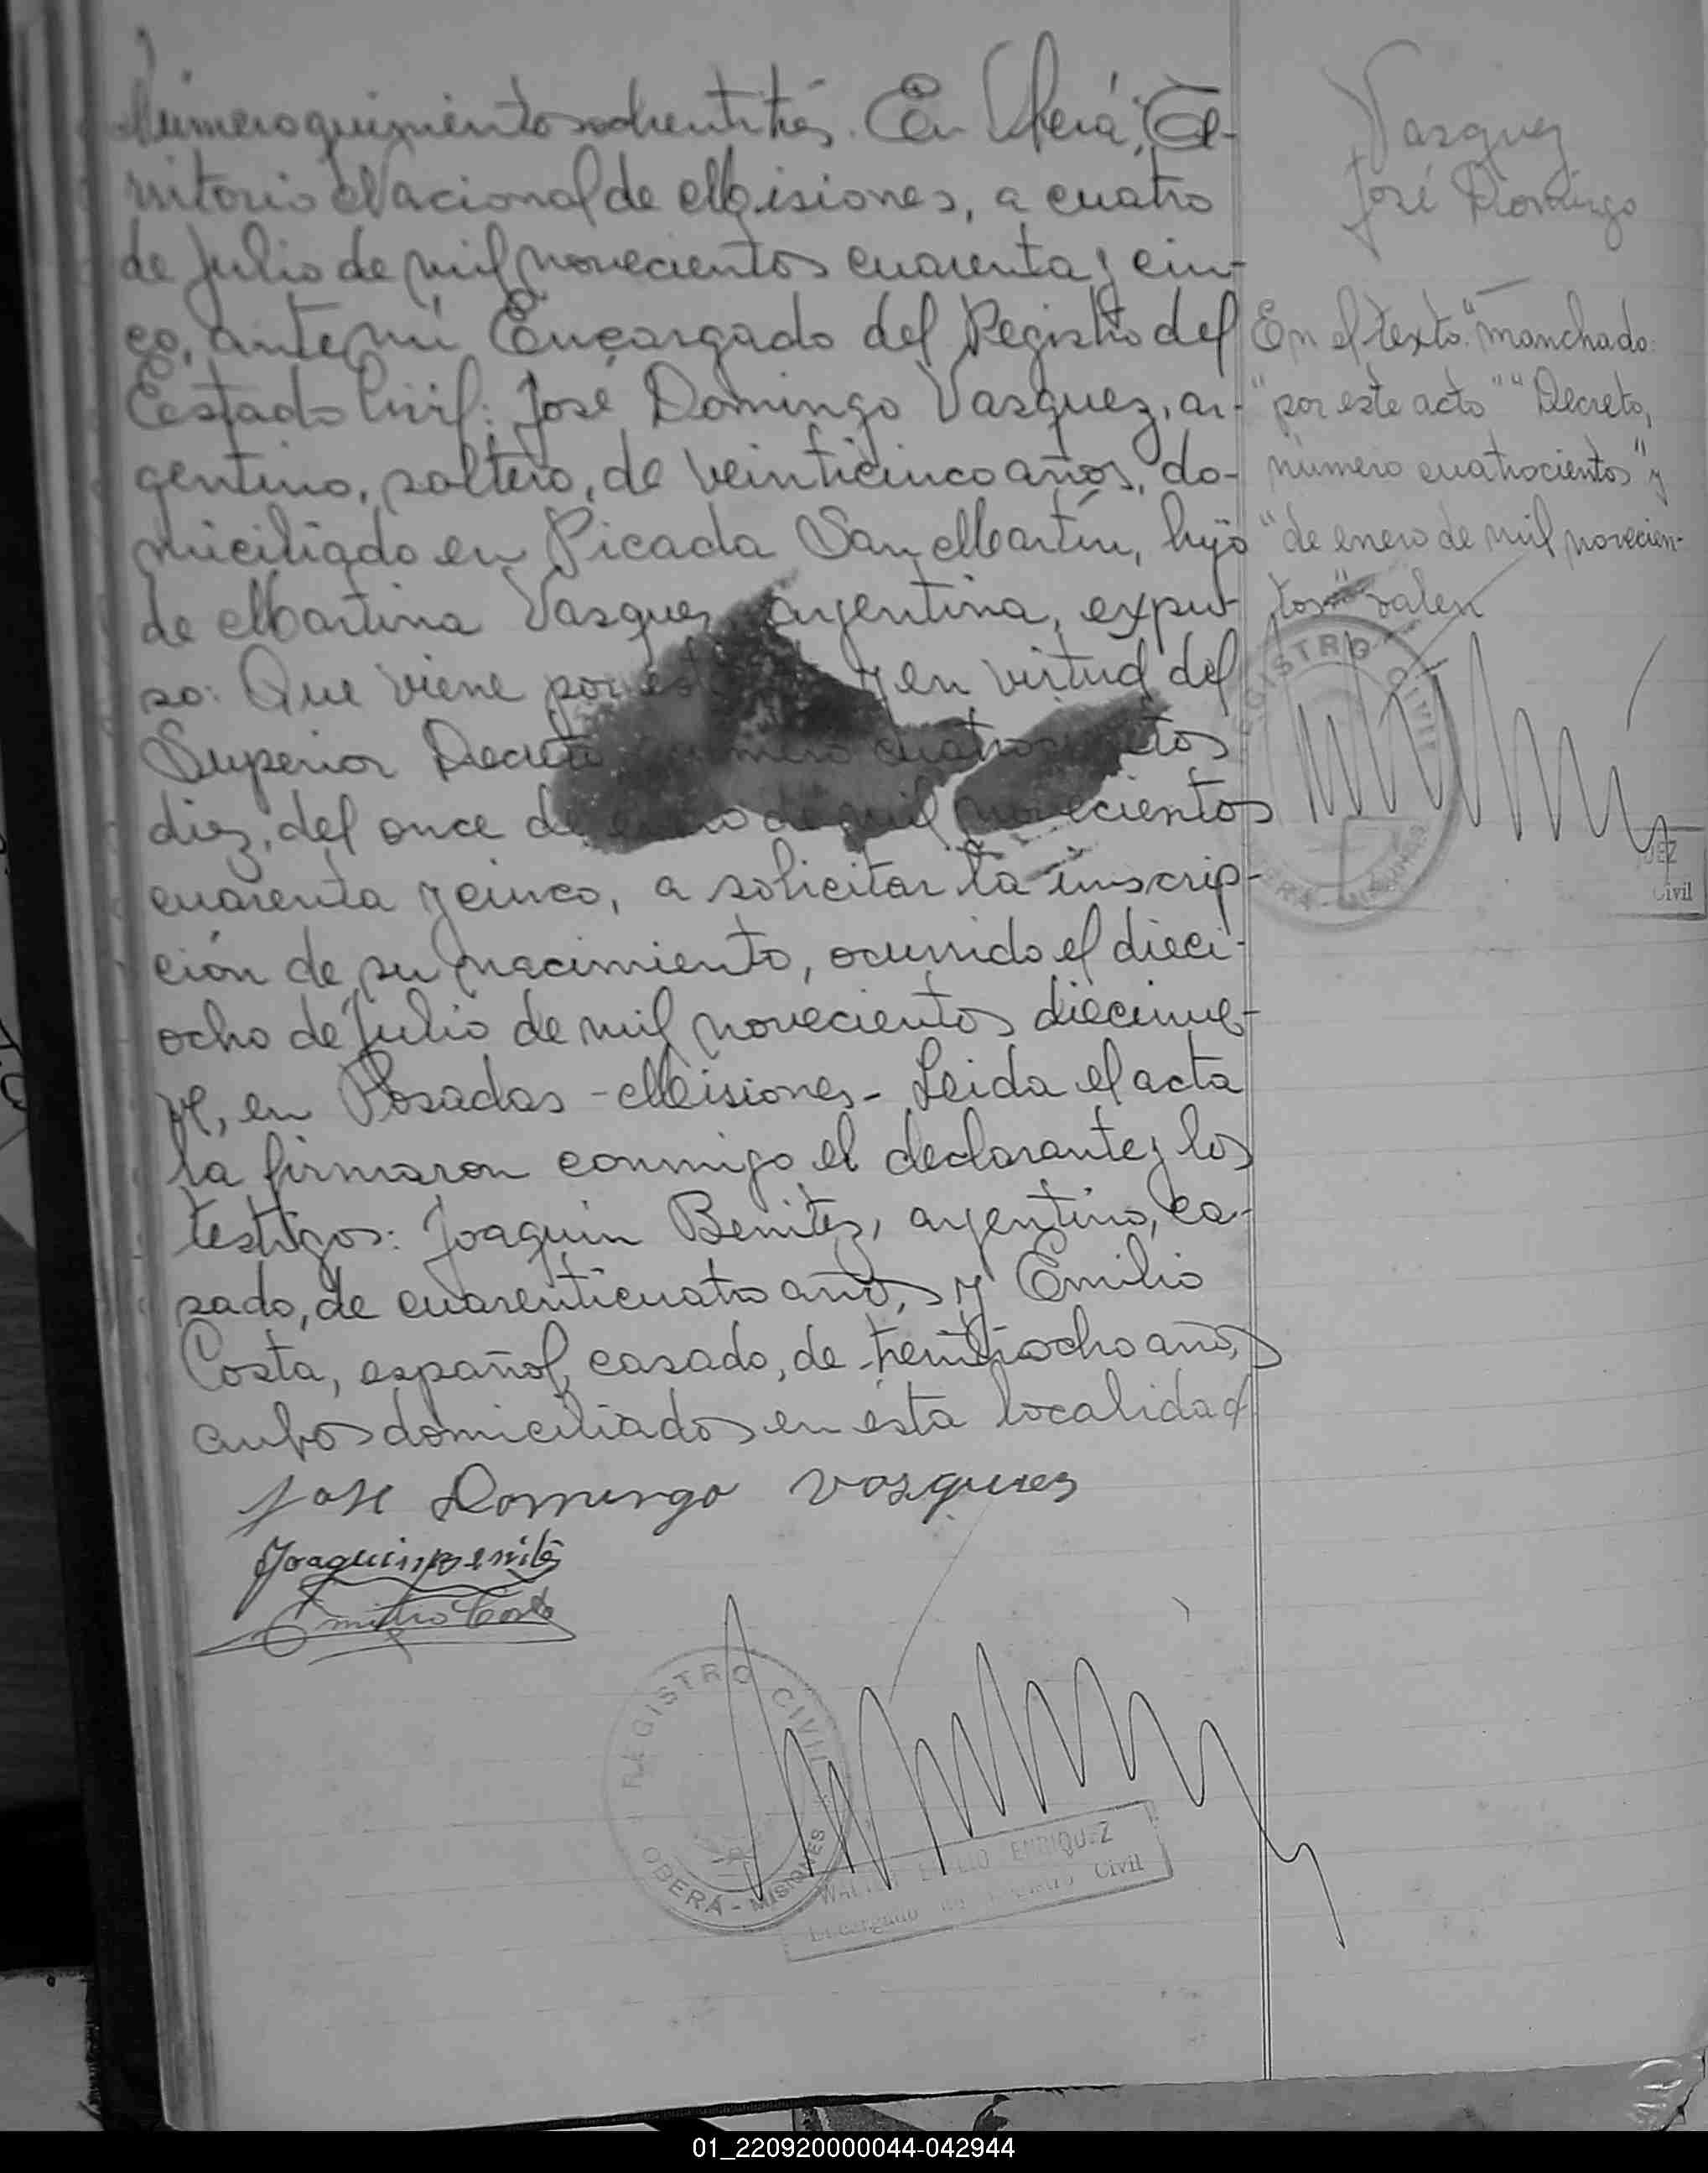 Número quinientos ochentitrés. En Oberá, Te-
rritorio Nacional de Misiones, a cuatro
de Julio de mil novecientos cuarenta y cin-
co, ante mí Encargado del Registro del
Estado Civil: José Domingo Vasquez, ar-
gentino, soltero, de veinticinco años, do-
miciliado en Picada San Martín, hijo
de Martina Vasquez argentina, expu-
so: Que viene por est y en virtud del
Superior Decreto número cuatrocientos
diez, del once de enero de mil novecientos
cuarenta y cinco, a solicitar la inscrip-
ción de su nacimiento, ocurrido el dieci-
ocho de Julio de mil novecientos diecinue-
ve, en Posadas - Misiones - Leida el acta
la firmaron conmigo el declarante y los
testigos: Joaquin Benitez, argentino, ca-
sado, de cuarenticuatro años, y Emilio
Costa, español, casado, de treintiocho años,
ambos domiciliados en ésta localidad
Jose Domingo Vasquez
Joaquin Benitez
Emilio Costa
REGISTRO CIVIL
OBERÁ - MISIONES
WALTER EMILIO ENRIQUEZ
Encargado del Registro Civil
Vasquez
José Domingo
En el texto: "manchado:
"por este acto" "Decreto,
número cuatrocientos" y
"de enero de mil novecien-
tos" valen
REGISTRO CIVIL
OBERÁ - MISIONES
UEZ
Civil
01_220920000044-042944